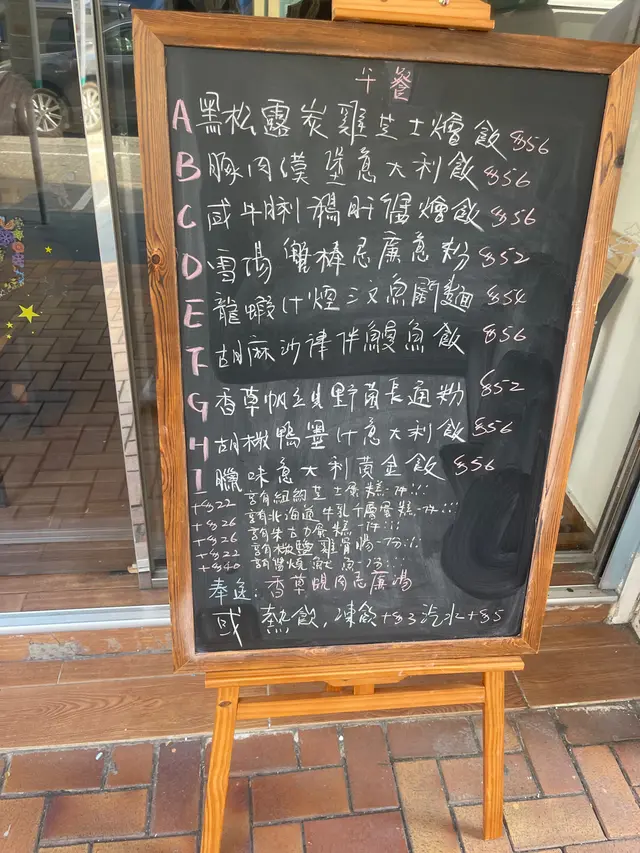 午餐
A 黑松露炭雞芝士燴飯 $56
B 豚肉漢堡意大利飯 $56
C 咸牛脷鵝肝醬燴飯 $56
D 雪湯蟹棒忌廉意粉 $52
E 龍蝦汁煙三文魚闊麵 $54
F 胡麻沙律伴鰻魚飯 $56
G 香草帆立貝野菌長通粉 $52
H 胡椒鴨墨汁意大利飯 $56
I 臘味意大利黃金飯 $56
+$22 享有紐約芝士蛋糕-件
+$26 享有北海道牛乳千層蛋糕-件
+$26 享有朱古力蛋糕-件
+$22 享有椒鹽雞腎腸-份
+$40 享有醬燒魷魚-份
奉送: 香草蜆肉忌廉湯
或 熱飲, 凍飲+$3 汽水+$5